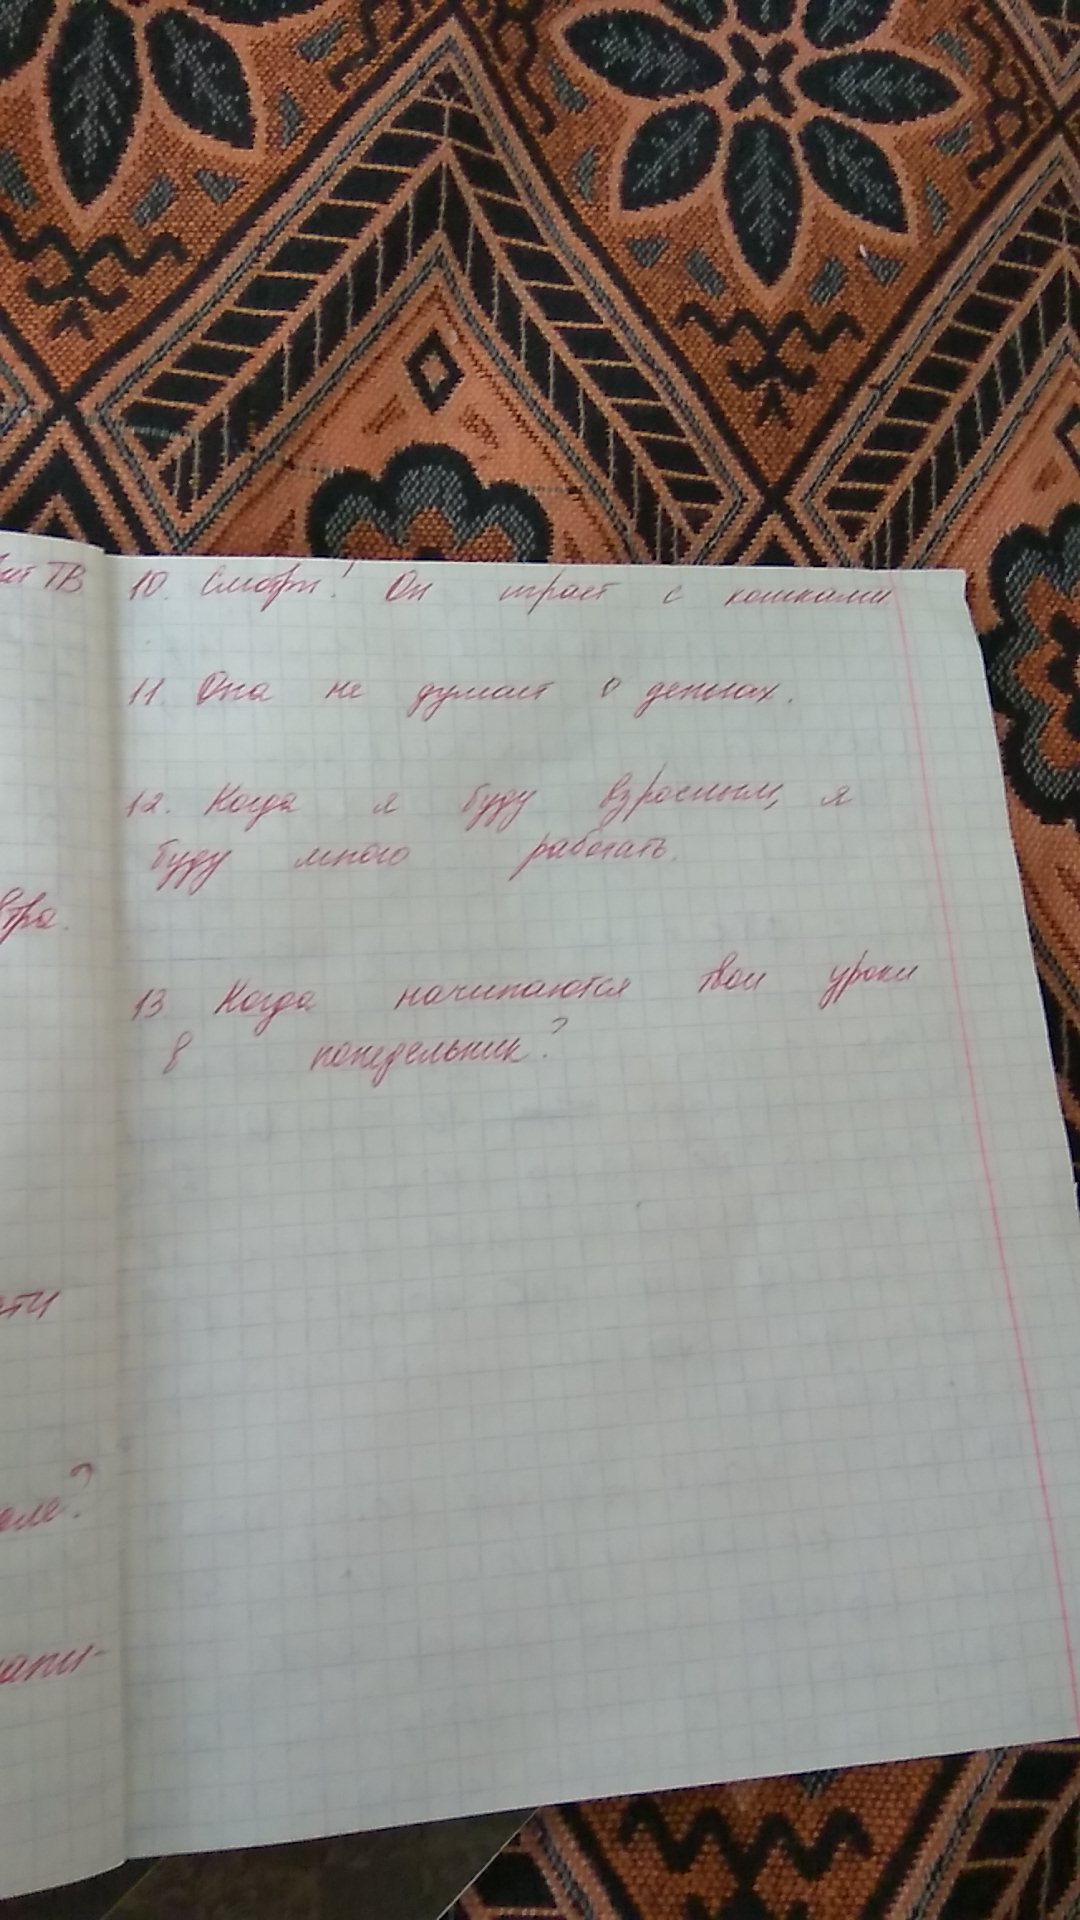 ТВ
10. Смотри! Он играет с кошками
11. Она не думает о деньгах.
12. Когда я буду взрослым, я
буду много работать.
13 Когда начинаются твои уроки
в понедельник?